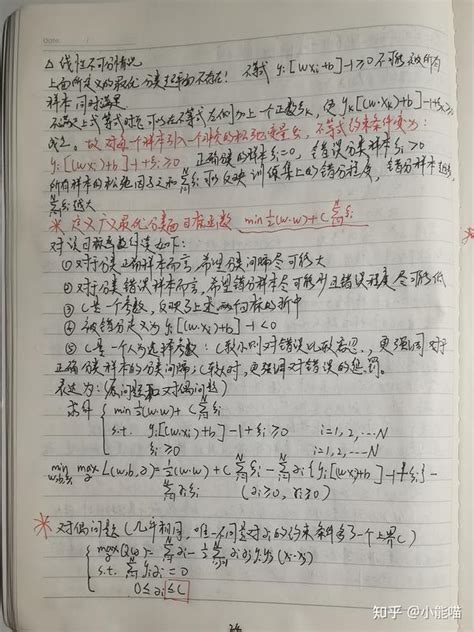 Date.
△ 线性不可分情况
上面所定义的最优分类超平面不存在! 不等式 yi[(wxi)+b]-1≥0不可能被所有
样本同时满足.
不满足上式等式时,可以在不等式左侧加上一个正数ξk, 使 yk[(w·xk)+b]-1+ξk≥0
成立. 故对每个样本引入一个非负的松弛变量ξi, 不等式约束条件变为:
yi[(w·xi)+b]-1+ξi≥0. 正确分类的样本ξi=0, 错误分类样本 ξi>0
所有样本的松弛因子之和∑ξi可以反映训练集上的错分程度, 错分样本越多,
∑ξi越大
* 定义广义最优分类面目标函数 min ½(w·w)+C∑ξi
对该目标函数解读如下:
① 对于分类正确样本而言, 希望分类间隔尽可能大
② 对于分类错误样本而言, 希望错分样本尽可能少且错误程度尽可能低
③ C是一个参数, 反映了上述两个目标的折中
④ 被错分定义为 yi[(w·xi)+b]-1<0
⑤ C是一个人为选择参数: C较小则对错误比较容忍, 更强调对于
正确分类样本的分类间隔; C较大时, 更强调对错误的惩罚.
表述为: (原问题和对偶问题)
求解 { min ½(w·w)+C∑ξi
s.t. yi[(w·xi)+b]-1+ξi≥0 i=1,2,...N
ξi≥0 i=1,2,...N
min w,b,ξi max α L(w,b,α)=½(w·w)+C∑ξi-∑αi{yi[(w·xi)+b]-1+ξi}-
∑γiξi (αi≥0, γi≥0)
* 对偶问题 (几乎相同, 唯一不同是对αi的约束条件多了一个上界C)
{ max Q(α)=∑αi-½∑αiαjyiyj(xi·xj)
s.t. ∑yiαi=0
0≤αi≤C
知乎 @小能喵